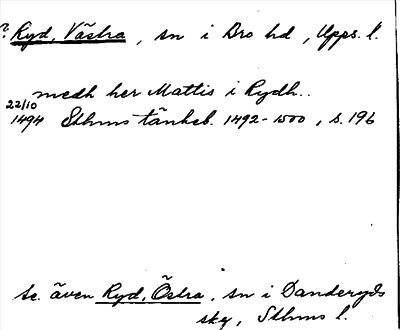 ? Ryd, Västra, sn i Bro hd, Upps. l.
medh her Mattis i Rydh..
22/10
1494 Sthms tänkeb. 1492-1500, s. 196
Se även Ryd, Östra, sn i Danderyds
skg, Sthms l.